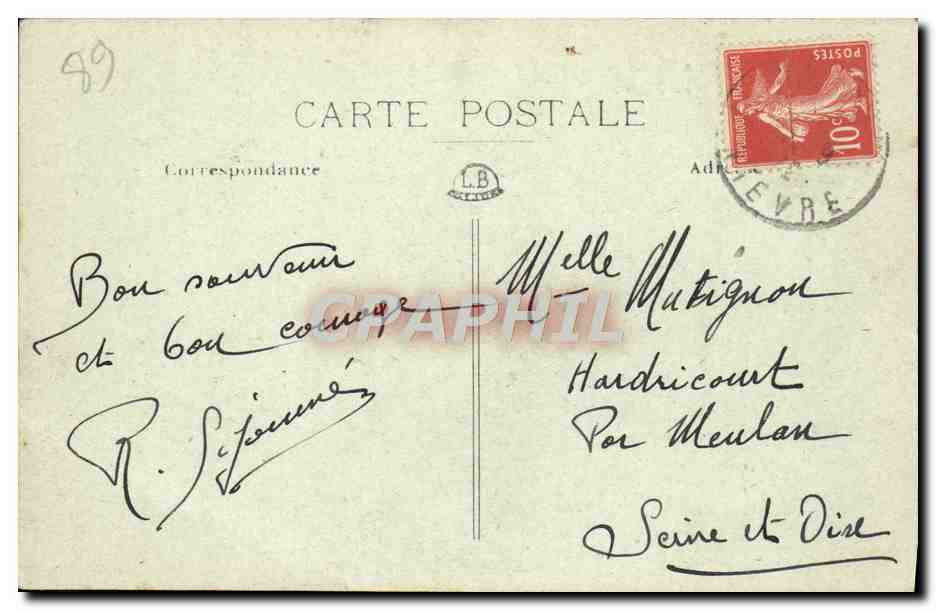 89
CARTE POSTALE
Correspondance
LB
Bon souvenir
et bon courage
R. Séjourné
REPUBLIQUE FRANÇAISE
POSTES
10c
NIEVRE
Melle Matignon
Hardricourt
Par Meulan
Seine et Oise
CPAPHIL